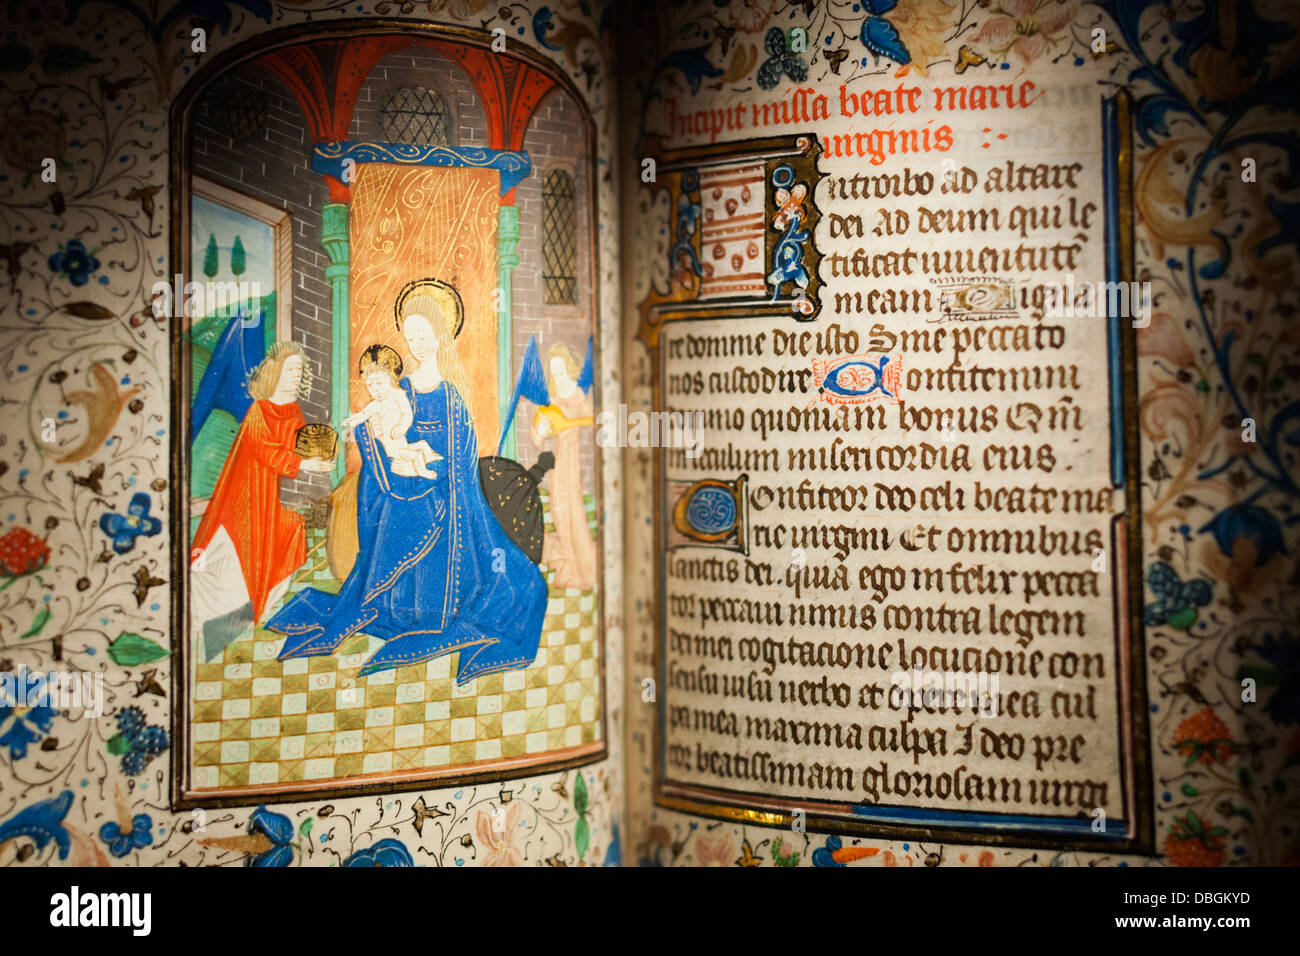 Incipit missa beate marie
virginis :·
Introibo ad altare
dei ad deum qui le
tificat iuventutē
meam Digna
re domine die isto Sine peccato
nos custodire Confitemini
domino quoniam bonus Qm̄
in seculum misericordia eius .
Confiteor deo celi beate ma
rie virgini Et omnibus
sanctis dei . quia ego infelix pecca
tor peccavi nimis contra legem
dei mei cogitacione locucione con
sensu visu verbo et opere mea cul
pa mea maxima culpa Ideo pre
cor beatissimam gloriosam virgi
alamy
alamy
Image ID: DBGKYD
www.alamy.com